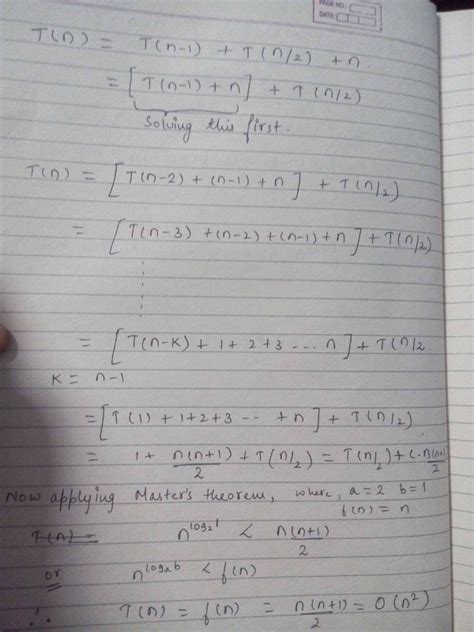 PAGE NO.
DATE:
T(n) = T(n-1) + T(n/2) + n.
= [T(n-1) + n] + T(n/2)
Solving this first.
T(n) = [T(n-2) + (n-1) + n] + T(n/2)
= [T(n-3) + (n-2) + (n-1) + n] + T(n/2)
= [T(n-K) + 1 + 2 + 3 ... n] + T(n/2.
K = n-1
= [T(1) + 1+2+3 -- + n] + T(n/2)
= 1 + n(n+1)/2 + T(n/2) = T(n/2) + c.n(n+1)/2
Now applying Master's theorem, where, a=2 b=1
f(n) = n
T(n) = n^log₂1 < n(n+1)/2
or n^logab < f(n)
∴ T(n) = f(n) = n(n+1)/2 = O(n²)